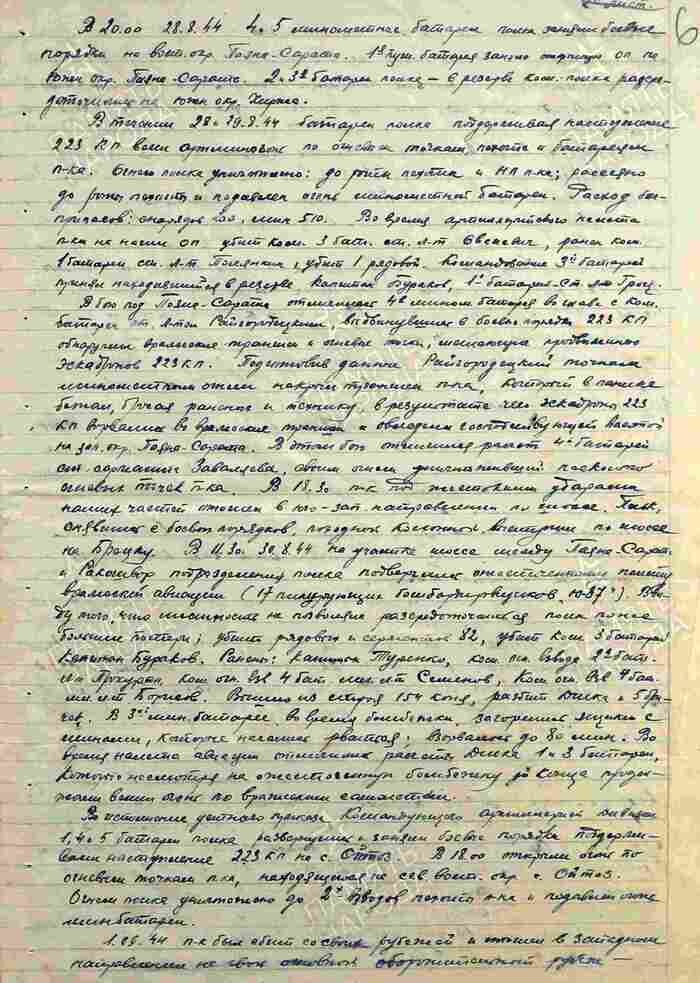 6
В 20.00 28.8.44 4 и 5 минометные батареи полка заняли боевые
порядки на вост. окр. Пояна-Сарата. 1я пуш. батарея заняла открытую оп на
южн окр. Пояна-Сарата. 2 и 3я батареи полка – в резерве ком. полка рассре-
доточились на южн окр.
В течении 28 и 29.8.44 батареи полка поддерживая наступление
223 КП вели артминогонь по огневым точкам, пехоте и батареям
п-ка. Огнем полка уничтожено: до роты пехоты и НП п-ка; рассеяно
до роты пехоты и подавлен огонь минометной батареи. Расход бое-
припасов: снарядов 200, мин 510. Во время артминометного налета
п-ка на наши оп убит ком. 3 бат. ст. л-т, ранен ком.
1 батареи ст. л-т, убит 1 рядовой. Командование 3й батареей
принял находившийся в резерве, капитан Бураков, 1й батареей - Ст. л-т
В бою под Пояна-Сарата отличилась 4я мином. батарея во главе с ком.
батареи ст. л-том Райгородецким, выдвинувшись в боевые порядки 223 КП
обнаружил вражеские траншеи и огневые точки, мешающие продвижению
эскадронов 223 КП. Подготовив данные, Райгородецкий точным
минометным огнем накрыл траншеи п-ка, который в панике
бежал, бросая раненых и технику, в результате чего эскадроны 223
КП ворвались во вражеские траншеи и овладели соответствующей высотой
на зап. окр. Пояна-Сарата. В этом бою отличился расчет 4й батареи
ст. сержанта Заваляева, своим огнем уничтоживший несколько
огневых точек п-ка. В 18.30 п-к под жестокими ударами
наших частей отошел в юго-зап направлении по шоссе. Полк,
снявшись с боевых порядков, походной колонной выступил по шоссе
на Брецку. В 11.30 30.8.44 на участке шоссе между Пояна-Сарата
и подразделения полка подверглись ожесточенному налету
вражеской авиации (17 пикирующих бомбардировщиков Ю-87). Вви-
ду того, что местность не позволяла рассредоточиться полк понес
большие потери: убиты рядового и сержантов 82, убит ком 3 батареи
капитан Бураков. Ранены: капитан Туренко, ком. взвода 2й бат.
л-т, ком огн. взв 4 бат мл. л-т Семенов, ком огн. взв 4 бат.
мл. л-т Борисов. Вышло из строя 154 коня, разбит Дшка и 5
В 3й мин. батарее, во время бомбежки, загорелись ящики с
минами, которые начали рваться, взорвалось до 80 мин. Во
время налета авиации отличились расчеты Дшка 1 и 3 батареи,
которые несмотря на ожесточенную бомбежку до конца продол-
жали вели огонь по вражеским самолетам.
Во исполнение устного приказа Командующего артиллерией дивизии
1, 4 и 5 батареи полка развернулись и заняли боевые порядки поддержи-
вали наступление 223 КП на с. Ойтоз. В 18.00 открыли огонь по
огневым точкам п-ка, находящимся на сев вост. окр с. Ойтоз.
Огнем полка уничтожено до 2х взводов пехоты п-ка и подавлен огонь
минбатареи.
1.09.44 п-к был сбит со своих рубежей и отошел в западном
направлении на свой основной оборонительный рубеж –